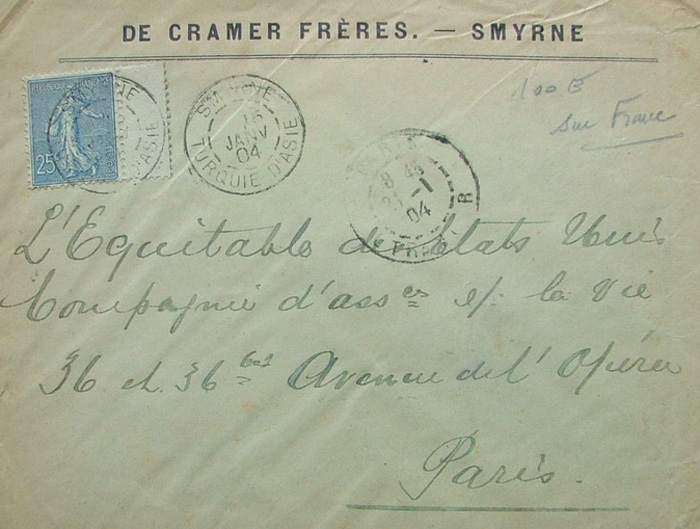 DE CRAMER FRÈRES. — SMYRNE
100 E
sur France
25
SMYRNE
SMYRNE
15
JANV
04
TURQUIE D'ASIE
PARIS
8 45
21 - 1
04
R
L'Equitable des Etats Unis
Compagnie d'ass ces s/. la Vie
36 et 36 bis Avenue de l'Opéra
Paris.